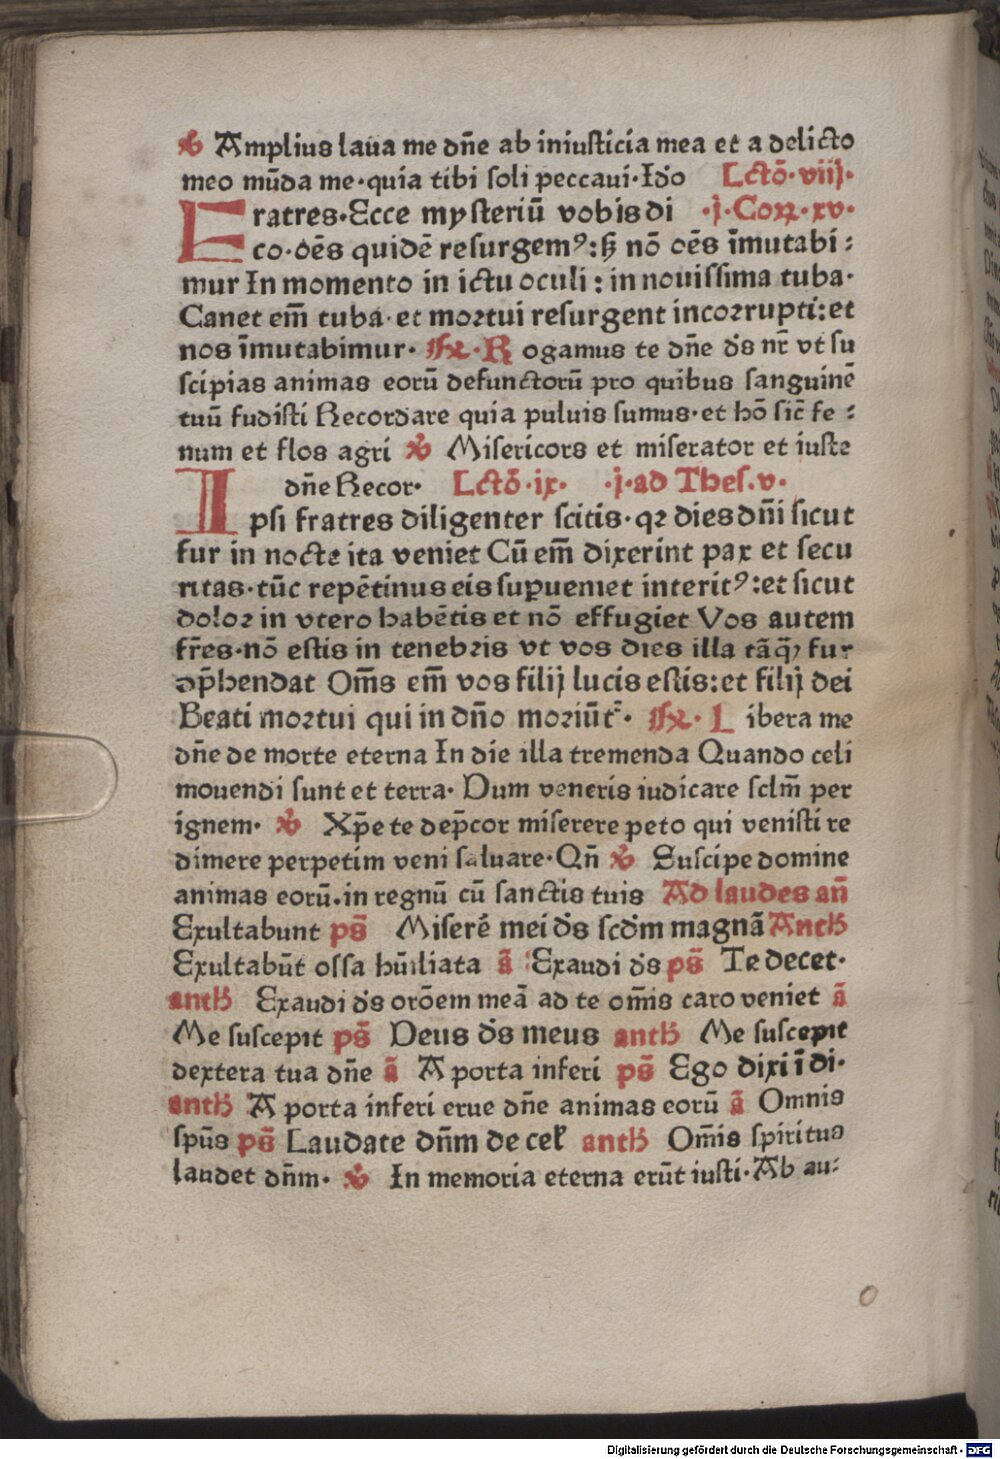 ℣ Amplius laua me dn̄e ab iniusticia mea et a delicto
meo mūda me·quia tibi soli peccaui·Ido Lctō·viij·
Fratres·Ecce mysteriū vobis di ·j·Corr·xv·
co·oēs quidē resurgemꝰ:sꝫ nō oēs īmutabi:
mur In momento in ictu oculi : in nouissima tuba·
Canet em̄ tuba·et moꝛtui resurgent incoꝛrupti:et
nos īmutabimur· ℞·Rogamus te dn̄e ds nr̄ vt su
scipias animas eorū defunctorū pro quibus sanguinē
tuū fudisti Recordare quia puluis sumus·et hō sic̄ fe :
num et flos agri ℣ Misericors et miserator et iuste
dn̄e Recor· Lctō·ix· ·j·ad Thes.v·
Ipsi fratres diligenter scitis·qꝛ dies dn̄i sicut
fur in nocte ita veniet Cū em̄ dixerint pax et secu
ritas·tūc repētinus eis suꝑueniet interitꝰ:et sicut
doloꝛ in vtero habētis et nō effugiet Vos autem
fr̄es·nō estis in tenebꝛis vt vos dies illa tāqꝫ fur
ap̄hendat Om̄s em̄ vos filij lucis estis:et filij dei
Beati moꝛtui qui in dn̄o moꝛiūt᷑· ℞·Libera me
dn̄e de morte eterna In die illa tremenda Quando celi
mouendi sunt et terra· Dum veneris iudicare sclm̄ per
ignem· ℣ Xp̄e te dep̄cor miserere peto qui venisti re
dimere perpetim veni saluare·Qn̄ ℣ Suscipe domine
animas eorū.in regnū cū sanctis tuis Ad laudes an̄
Exultabunt ps̄ Miserē mei ds scdm magnā Anth
Exultabūt ossa hūiliata ā Exaudi ds ps̄ Te decet·
anth Exaudi ds orōem meā ad te om̄is caro veniet ā
Me suscepit ps̄ Deus ds meus anth Me suscepit
dextera tua dn̄e ā A porta inferi ps̄ Ego dixi ī di·
anth A porta inferi erue dn̄e animas eorū ā Omnis
spūs ps̄ Laudate dn̄m de cel̄ anth Om̄is spiritus
laudet dn̄m· ℣ In memoria eterna erūt iusti·Ab au:
Digitalisierung gefördert durch die Deutsche Forschungsgemeinschaft · DFG